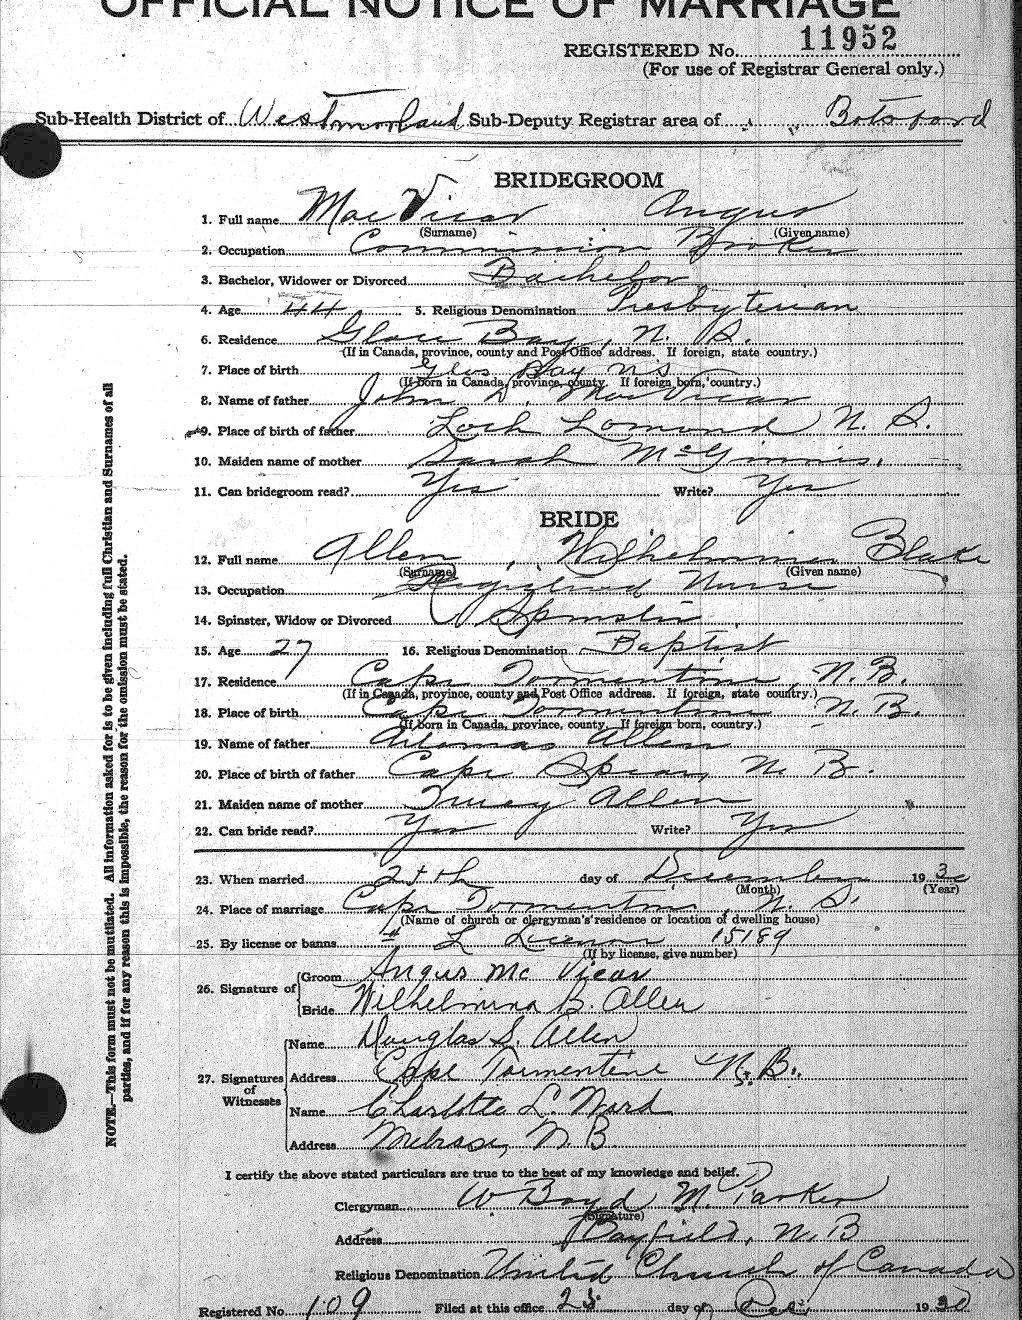 OFFICIAL NOTICE OF MARRIAGE
REGISTERED No. 11952
(For use of Registrar General only.)
Sub-Health District of Westmorland Sub-Deputy Registrar area of Botsford
BRIDEGROOM
1. Full name Mac Vicar Angus
(Surname) (Given name)
2. Occupation Commission Broker
3. Bachelor, Widower or Divorced Bachelor
4. Age 44 5. Religious Denomination Presbyterian
6. Residence Glace Bay, N. S.
(If in Canada, province, county and Post Office address. If foreign, state country.)
7. Place of birth Bay NS
(If born in Canada, province, county. If foreign born, country.)
8. Name of father John D. MacVicar
9. Place of birth of father Loch Lomond N. S.
10. Maiden name of mother Sarah McGinnis.
11. Can bridegroom read? Yes Write? Yes
BRIDE
12. Full name Allen, Wilhelmina Blake
(Surname) (Given name)
13. Occupation Registered Nurse
14. Spinster, Widow or Divorced Spinster
15. Age 27 16. Religious Denomination Baptist
17. Residence Cape Tormentine, N. B.
(If in Canada, province, county and Post Office address. If foreign, state country.)
18. Place of birth Cape Tormentine N. B.
(If born in Canada, province, county. If foreign born, country.)
19. Name of father Allen
20. Place of birth of father Cape Spear, N. B.
21. Maiden name of mother Allen
22. Can bride read? Yes Write? Yes
23. When married day of December 1930
(Month) (Year)
24. Place of marriage Cape Tormentine, N.
(Name of church or clergyman's residence or location of dwelling house)
25. By license or banns L License 15189
(If by license, give number)
26. Signature of Groom Angus Mc Vicar
Bride Wilhelmina B. Allen
27. Signatures of Witnesses
Name Douglas S. Allen
Address Cape Tormentine N. B.
Name Charlotte L. Ward
Address Melrose, N B
I certify the above stated particulars are true to the best of my knowledge and belief.
Clergyman W Boyd M. Parker
(Signature)
Address Bayfield, N. B
Religious Denomination United Church of Canada
Registered No. 109 Filed at this office day of 1930
NOTE.—This form must not be mutilated. All information asked for is to be given including full Christian and Surnames of all
parties, and if for any reason this is impossible, the reason for the omission must be stated.